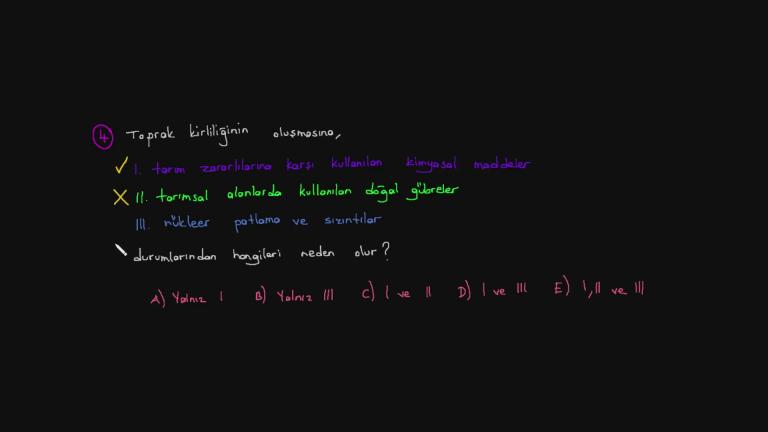 4 Toprak kirliliğinin oluşmasına,
I. tarım zararlılarına karşı kullanılan kimyasal maddeler
II. tarımsal alanlarda kullanılan doğal gübreler
III. nükleer patlama ve sızıntılar
durumlarından hangileri neden olur?
A) Yalnız I B) Yalnız III C) I ve II D) I ve III E) I, II ve III